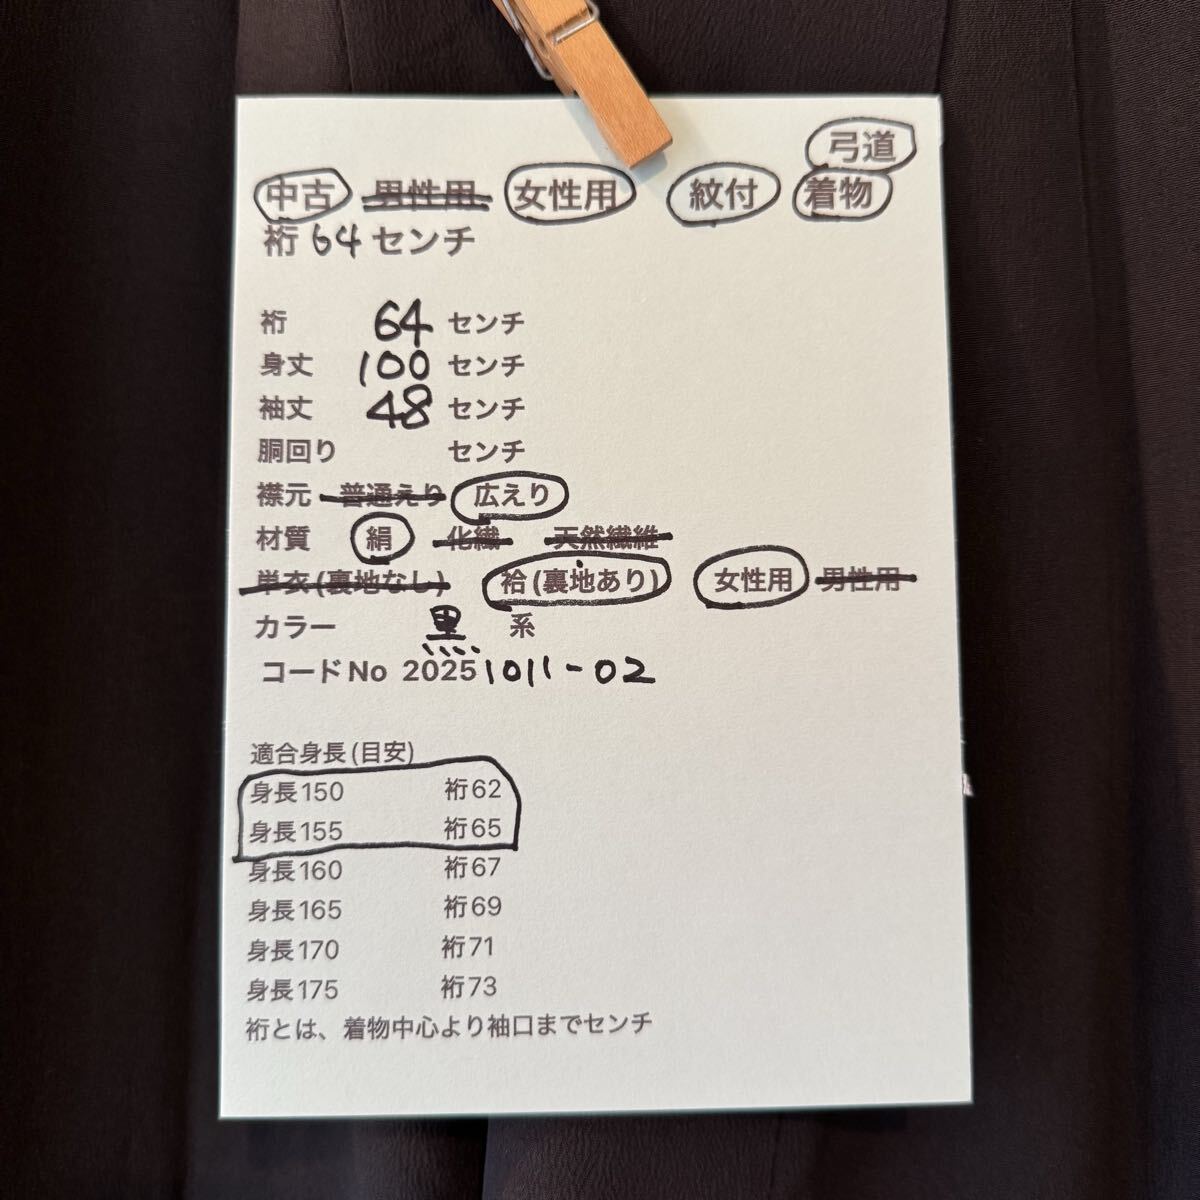 弓道
中古 男性用 女性用 紋付 着物
裄 64 センチ
裄 64 センチ
身丈 100 センチ
袖丈 48 センチ
胴回り センチ
襟元 普通えり 広えり
材質 絹 化繊 天然繊維
単衣(裏地なし) 袷(裏地あり) 女性用 男性用
カラー 黒 系
コードNo 20251011-02
適合身長(目安)
身長150 裄62
身長155 裄65
身長160 裄67
身長165 裄69
身長170 裄71
身長175 裄73
裄とは、着物中心より袖口までセンチ